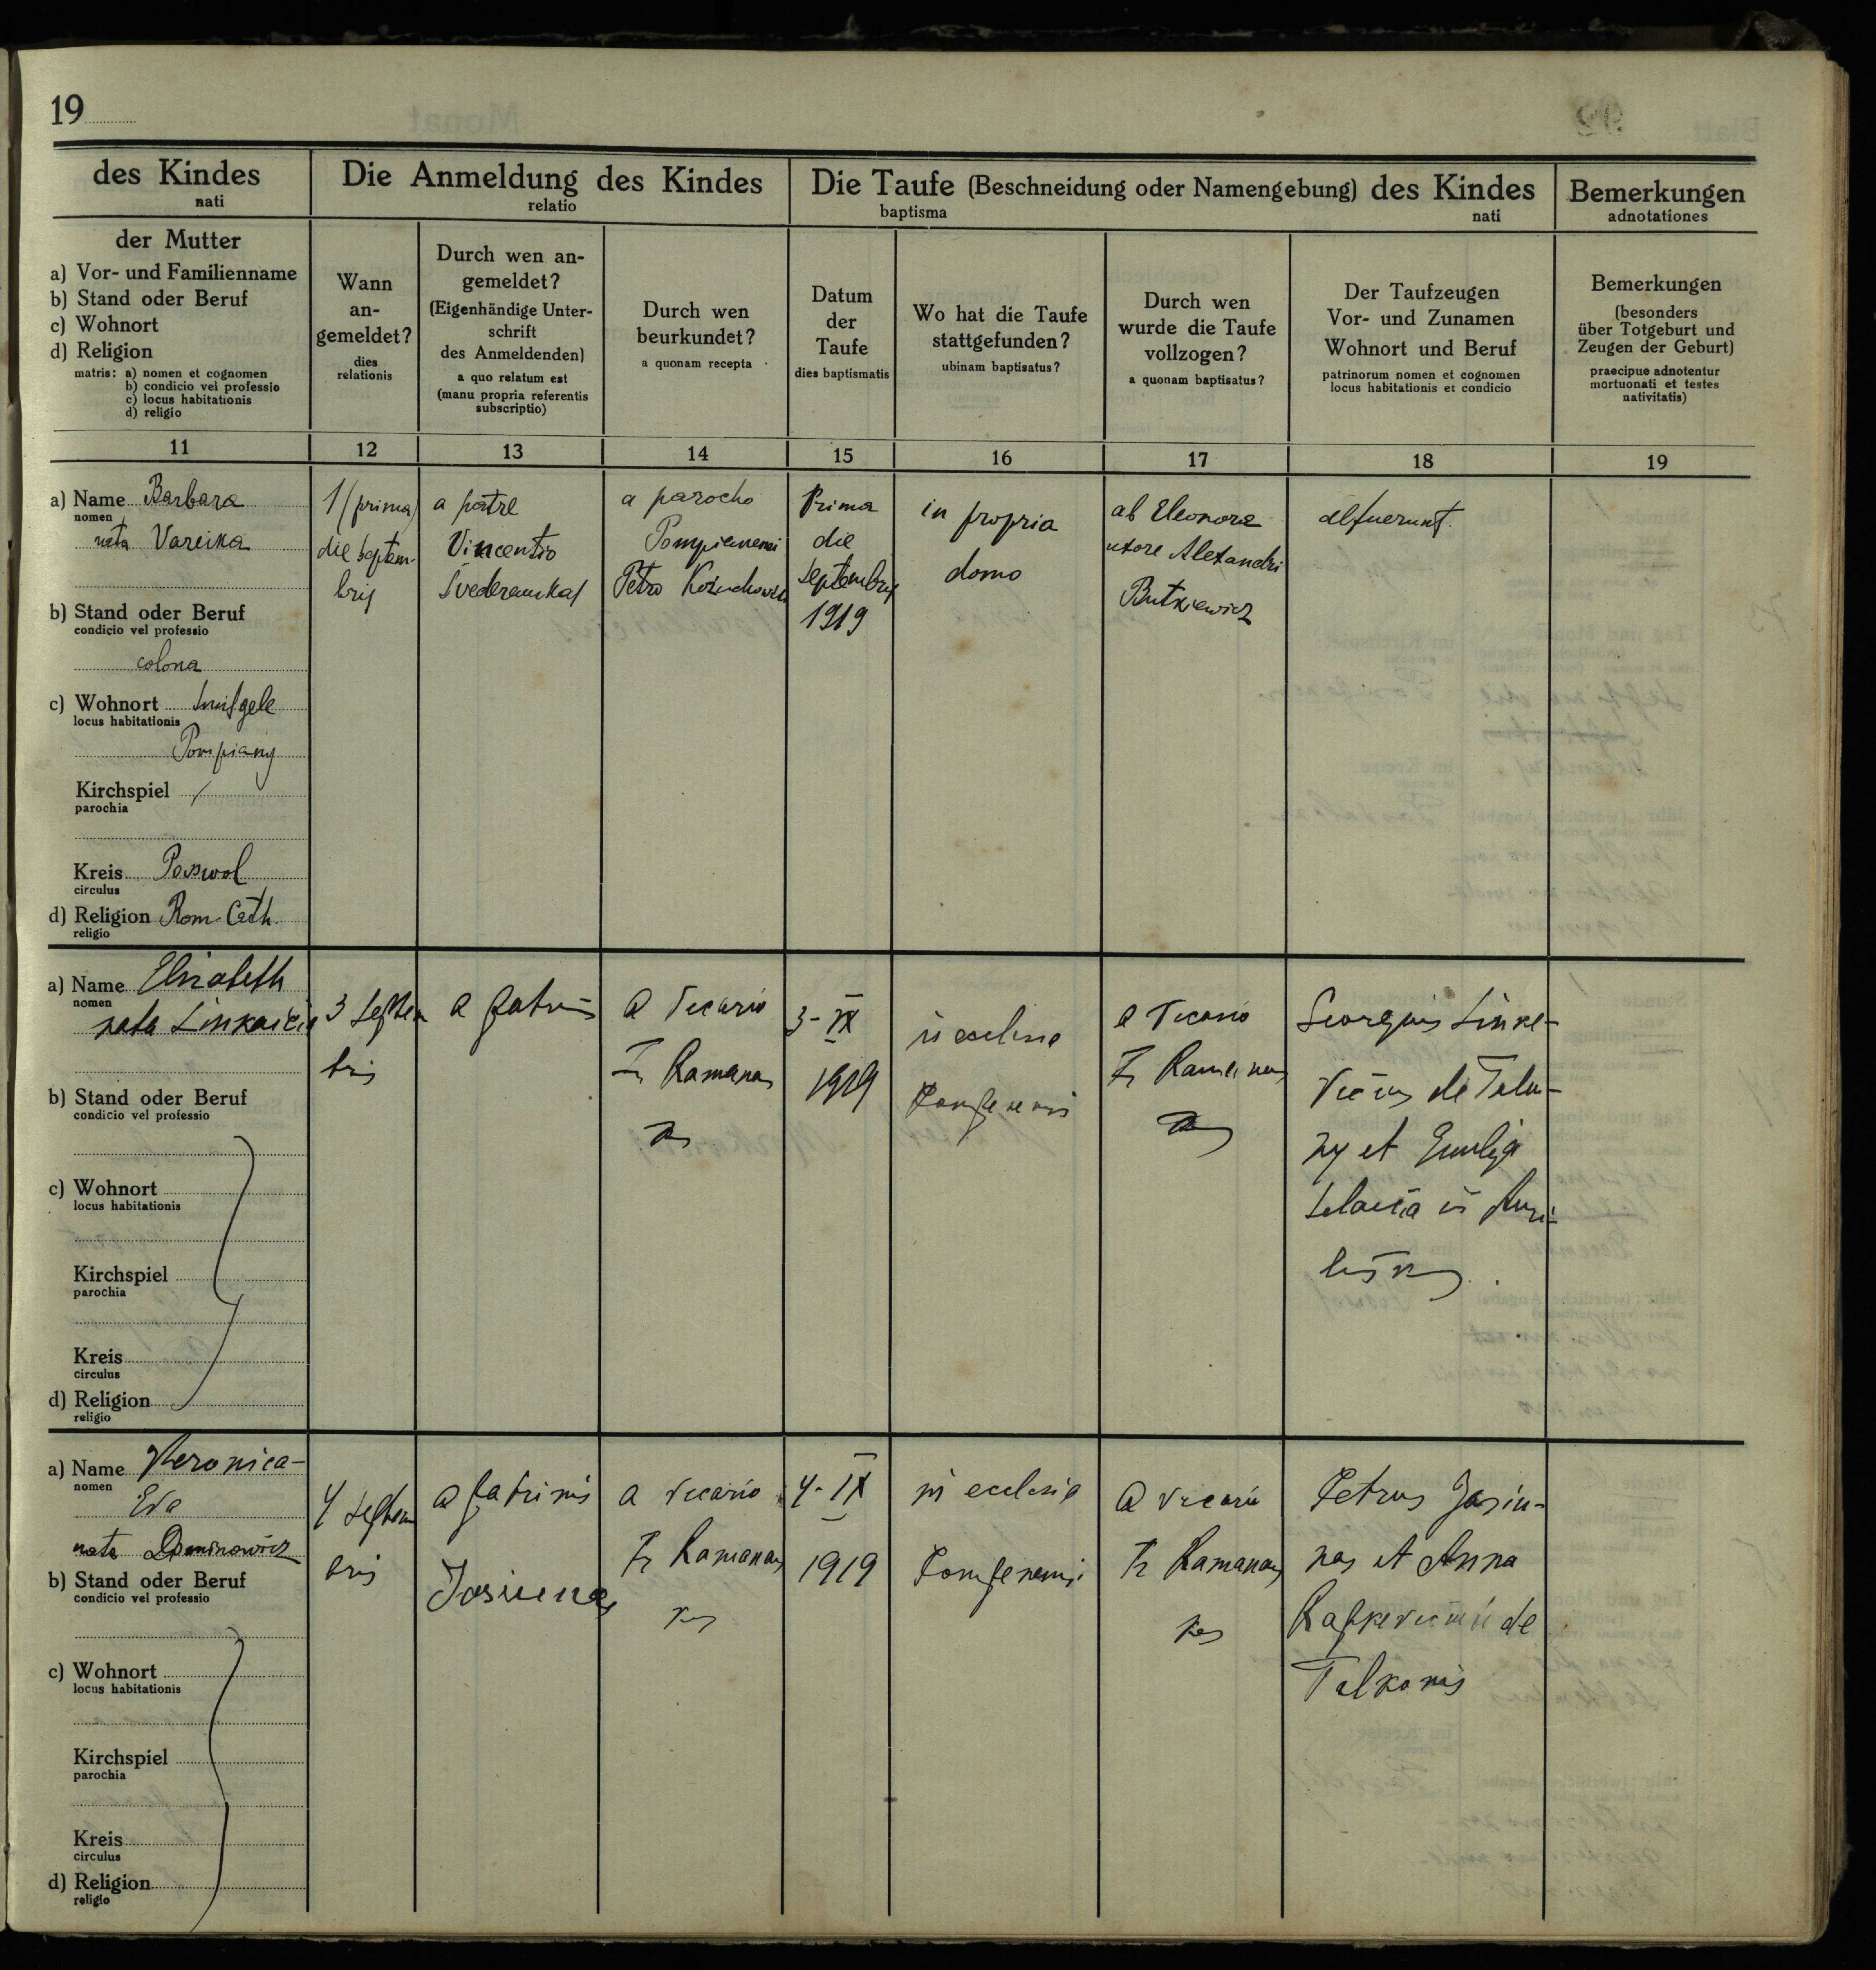 19
des Kindes
nati
Die Anmeldung des Kindes
relatio
Die Taufe (Beschneidung oder Namengebung) des Kindes
baptisma nati
Bemerkungen
adnotationes
der Mutter
a) Vor- und Familienname
b) Stand oder Beruf
c) Wohnort
d) Religion
matris: a) nomen et cognomen
b) condicio vel professio
c) locus habitationis
d) religio
Wann
an-
gemeldet?
dies
relationis
Durch wen an-
gemeldet?
(Eigenhändige Unter-
schrift
des Anmeldenden)
a quo relatum est
(manu propria referentis
subscriptio)
Durch wen
beurkundet?
a quonam recepta
Datum
der
Taufe
dies baptismatis
Wo hat die Taufe
stattgefunden?
ubinam baptisatus?
Durch wen
wurde die Taufe
vollzogen?
a quonam baptisatus?
Der Taufzeugen
Vor- und Zunamen
Wohnort und Beruf
patrinorum nomen et cognomen
locus habitationis et condicio
Bemerkungen
(besonders
über Totgeburt und
Zeugen der Geburt)
praecipue adnotentur
mortuonati et testes
nativitatis)
11
12
13
14
15
16
17
18
19
a) Name Barbara
nomen
nata Vareika
b) Stand oder Beruf
condicio vel professio
colona
c) Wohnort
locus habitationis
Pompiany
Kirchspiel
parochia
Kreis Posswol
circulus
d) Religion Rom. Cath.
religio
1 (prima)
die Septem-
bris
a patre
Vincentio
Švederauskas
a parocho
Petro
Prima
die
Septembris
1919
in propria
domo
ab Eleonora
uxore Alexandri
Butkiewicz
a) Name Elisabeth
nomen
nata
b) Stand oder Beruf
condicio vel professio
c) Wohnort
locus habitationis
Kirchspiel
parochia
Kreis
circulus
d) Religion
religio
3 Septem
bris
a
a vicario
Ramanas
3-IX
1919
in eclesie
a vicario
et
a) Name Veronica-
nomen
Eva
nata Dominowicz
b) Stand oder Beruf
condicio vel professio
c) Wohnort
locus habitationis
Kirchspiel
parochia
Kreis
circulus
d) Religion
religio
4 Septem
bris
a patrinis
Jasiunas
a vicario
Ramanaus
kas
4-IX
1919
in eclesie
a vicario
Ramanaus
kas
Petrus Jasiu-
nas et Anna
de